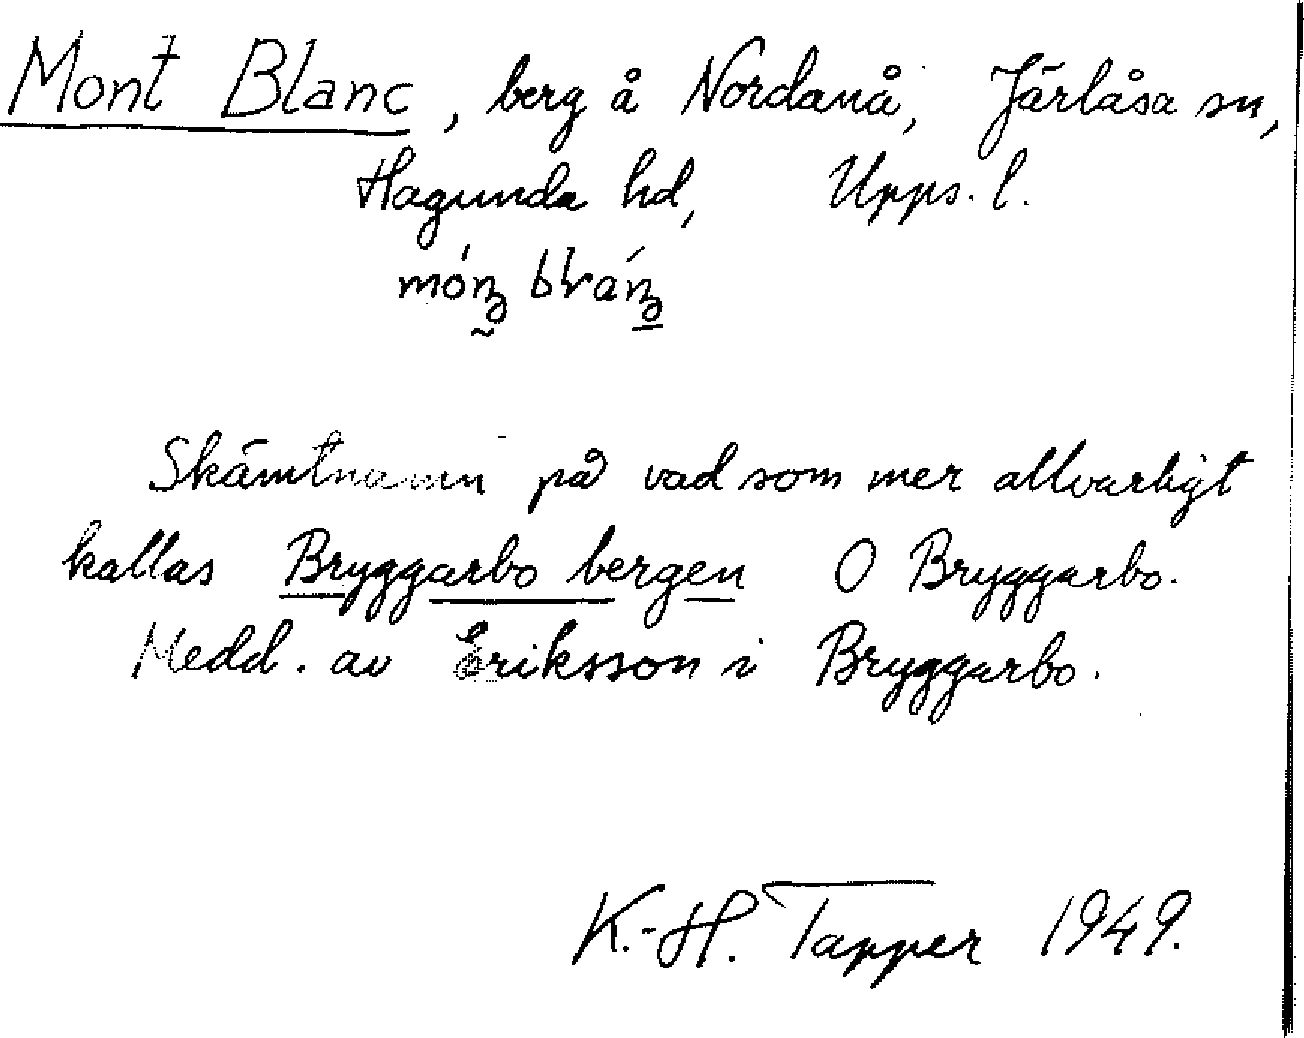 Mont Blanc, berg å Nordanå, Järlåsa sn,
Hagunda hd, Upps. l.
Skämtnamn på vad som mer allvarligt
kallas Bryggarbo bergen O Bryggarbo.
Medd. av Eriksson i Bryggarbo.
K.-H. Tapper 1949.